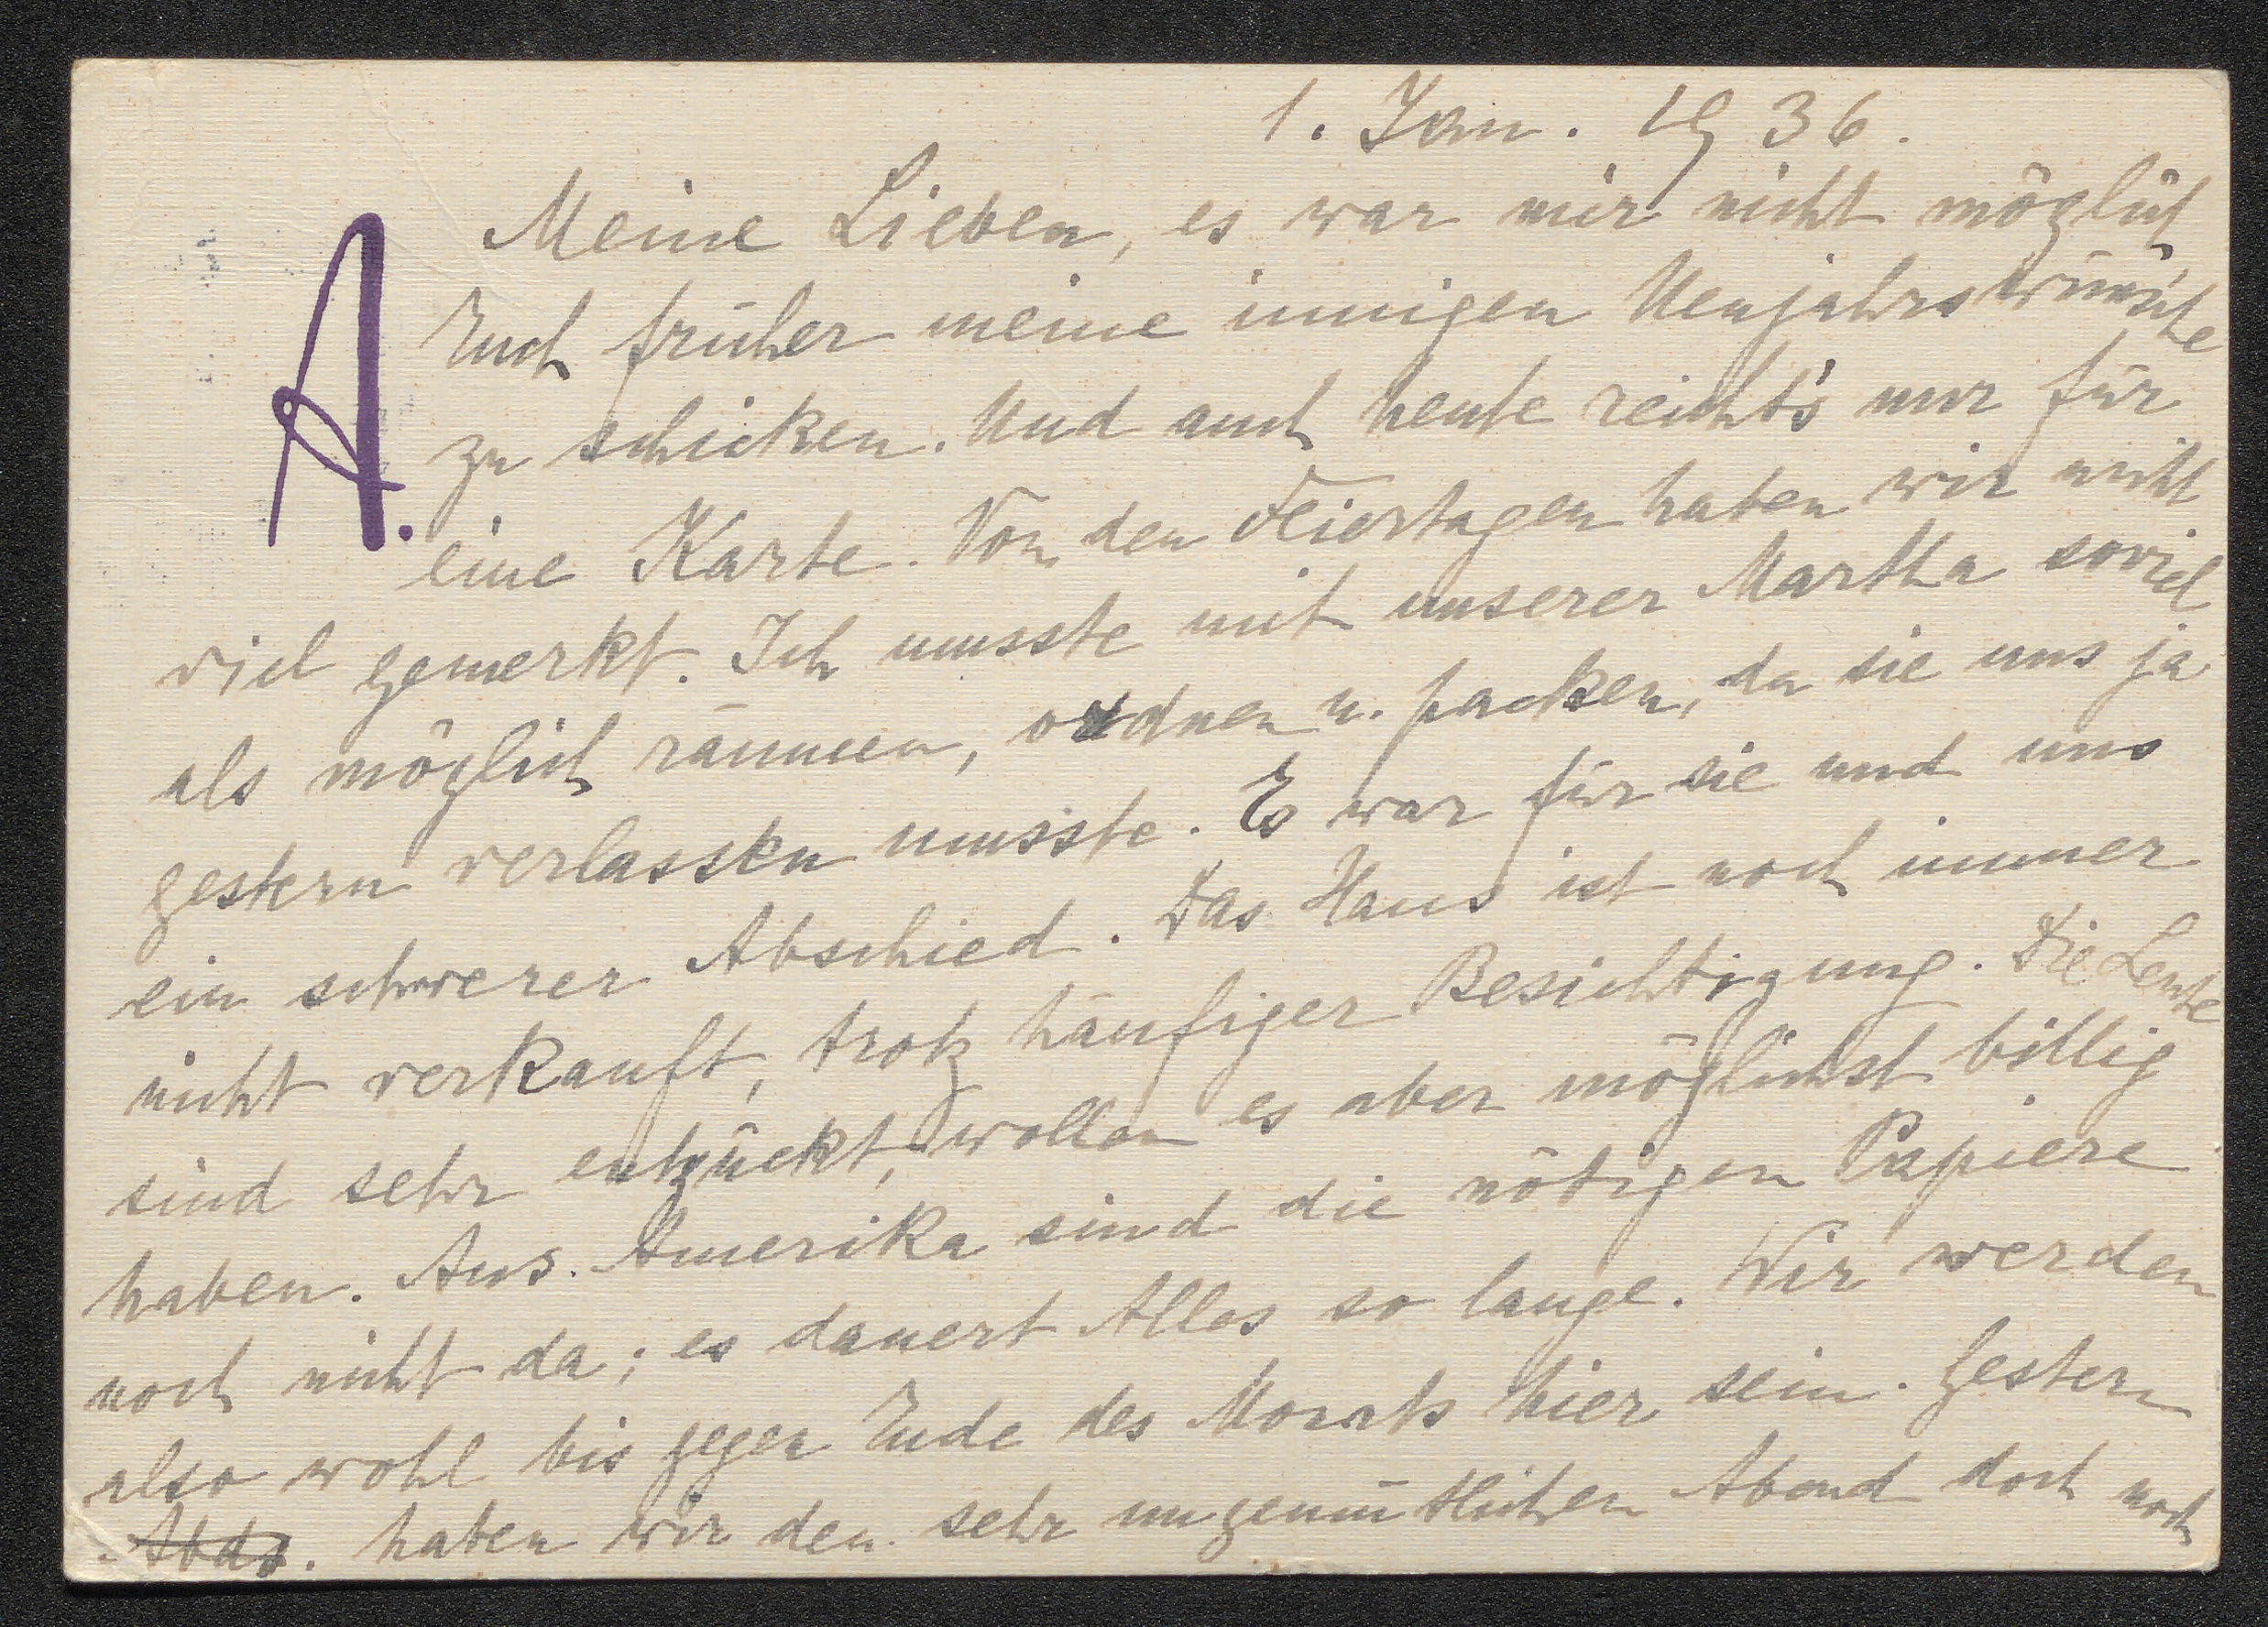 1. Jan. 1936.
Meine Lieben, es war mir nicht möglich
Euch früher meine innigen Neujahrswünsche
zu schicken. Und auch heute reicht's nur für
A.
eine Karte. Von den Feiertagen haben wir nicht
viel gemerkt. Ich musste mit unserer Martha soviel
als möglich räumen, ordnen u. packen, da sie uns ja
gestern verlassen musste. Es war für sie und uns
ein schwerer Abschied. Das Haus ist noch immer
nicht verkauft, trotz häufiger Besichtigung. Die Leute
sind sehr entzückt, wollen es aber möglichst billig
haben. Aus Amerika sind die nötigen Papiere
noch nicht da; es dauert Alles so lange. Wir werden
also wohl bis gegen Ende des Monats hier sein. Gestern
Abds. haben wir den sehr ungemütlichen Abend doch noch